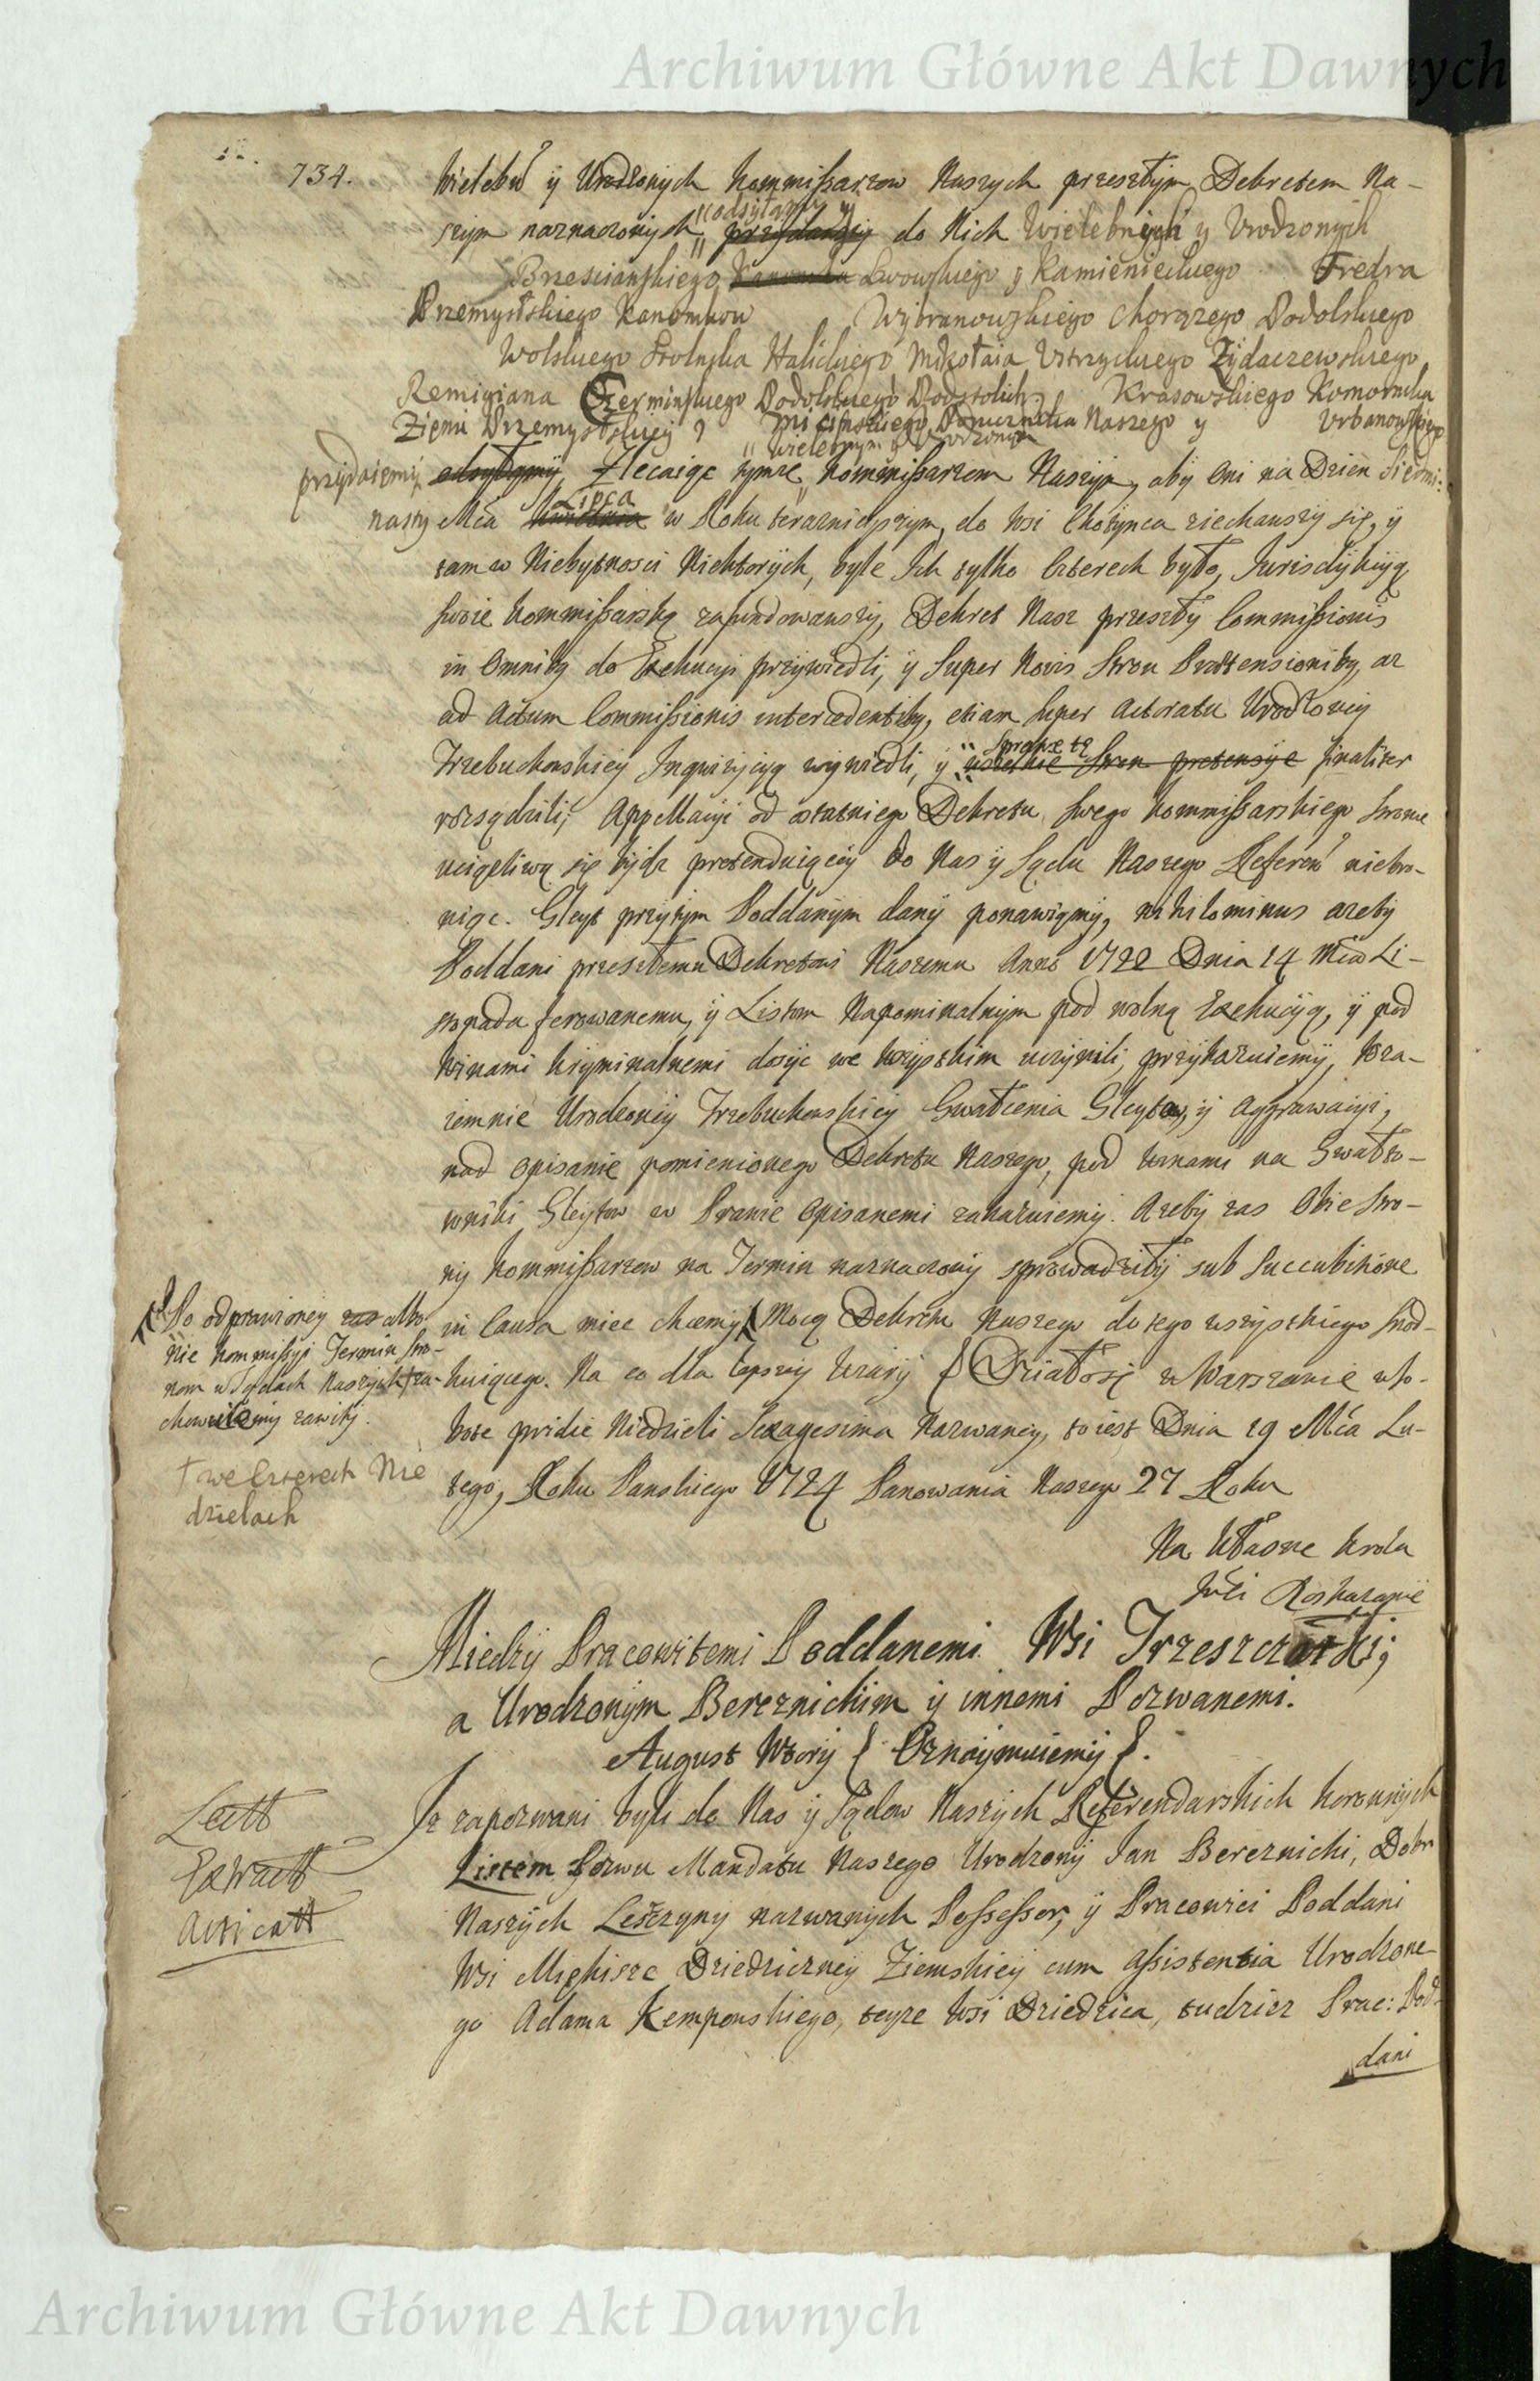 Archiwum Główne Akt Dawnych
734.
Wieleb: y Urodzonych Kommißarzow Naszych przeszłym Dekretem Na-
szym naznaczonych odsyłamy y przydawszy do Nich Wielebnych y Urodzonych
Brzescianskiego Kanonika Lwowskiego y Kamienieckiego Fredra
Przemyslskiego Kanonikow Wybranowskiego Chorązego Podolskiego
Wolskiego Stolnika Halickiego Mikołaia Ustrzyckiego Zydaczewskiego
Remigiana Czerminskiego Podolskiego Podstolich Krasowskiego Komornika
Ziemi Przemyslskiey Podczaszego Naszego y Urbanowskiego
Wielebnym y Urodzonym
przydaiemy odsyłamy Zlecaiąc tymze Kommißarzom Naszym, aby Oni na Dzien Siedm:
nasty Mca Lipca Kwietnia w Roku teraznieyszym, do Wsi Chotynca ziechawszy się, y
tam w Niebytnosci Niektorych, byle Ich tylko Czterech było, Jurisdykcyą
swoię Kommißarską zafundowawszy, Dekret Nasz przeszły Commißionis
in Omnibq do Exekucyi przywiedli, y Super Novis Stron Praetensionibq, az
ad Actum Commißionis intercedentibq, etiam super Actoratu Urodzoney
Trzebuchowskiey Inquizycyą wywiedli, y Sprawę tę wszelkie Stron pretensye finaliter
rozsądzili; Appellacyi od ostatniego Dekretu swego Kommißarskiego Stronie
uciązliwą się bydz pretenduiącey do Nas y Sądu Naszego Referen: niebro-
niąc. Gleyt przytym Poddanym dany ponawiamy, nihilominus azeby
Poddani przeszłemu Dekretowi Naszemu Anno 1722 Dnia 14 Mca Li-
stopada ferowanemu, y Listom Napominalnym pod wolną Exekucyą, y pod
Winami kryminalnemi dosyc we wszystkim uczynili, przykazuiemy, Wza-
iemnie Urodzoney Trzebuchowskiey Gwałcenia Gleytow, y Aggrawacyi,
nad opisanie pomienionego Dekretu Naszego, pod winami na Gwałto-
wniki Gleytow w Prawie Opisanemi zakazuiemy. Azeby zas Obie Stro-
ny Kommißarzow na Termin naznaczony sprowadziły sub Succubitione
in Causa miec chcemy, Mocą Dekretu Naszego do tego wszystkiego Snad-
Po odprawioney zas albo
nie Kommißyi Termin Stro-
nom w Sądach Naszych † za-
chowuiemy zawity.
† we Czterech Nie
dzielach
kuiącego. Na co dla lepszey Wiary Działo się w Warszawie w So-
botę pridie Niedzieli Sexagesima Nazwaney, to iest Dnia 19 Mca Lu-
tego, Roku Panskiego 1724 Panowania Naszego 27 Roku
Na Własne Krola
JMci Roskazanie
Miedzy Pracowitemi Poddanemi Wsi Trzeszczatki,
a Urodzonym Bereznickim y innemi Pozwanemi.
August Wtory Oznaymuiemy.
Lectt
Extractt
Iz zapozwani byli do Nas y Sądow Naszych Referendarskich koronnych
Listem Pozwu Mandatu Naszego Urodzony Jan Bereznicki, Dobr
Naszych Leszczyny nazwanych Poßeßor, y Pracowici Poddani
Wsi Miękisze Dziedziczney Ziemskiey cum Aßistentia Urodzone-
go Adama Kemponskiego, teyze Wsi Dziedzica, tudziez Prac: Pod-
dani
Archiwum Główne Akt Dawnych